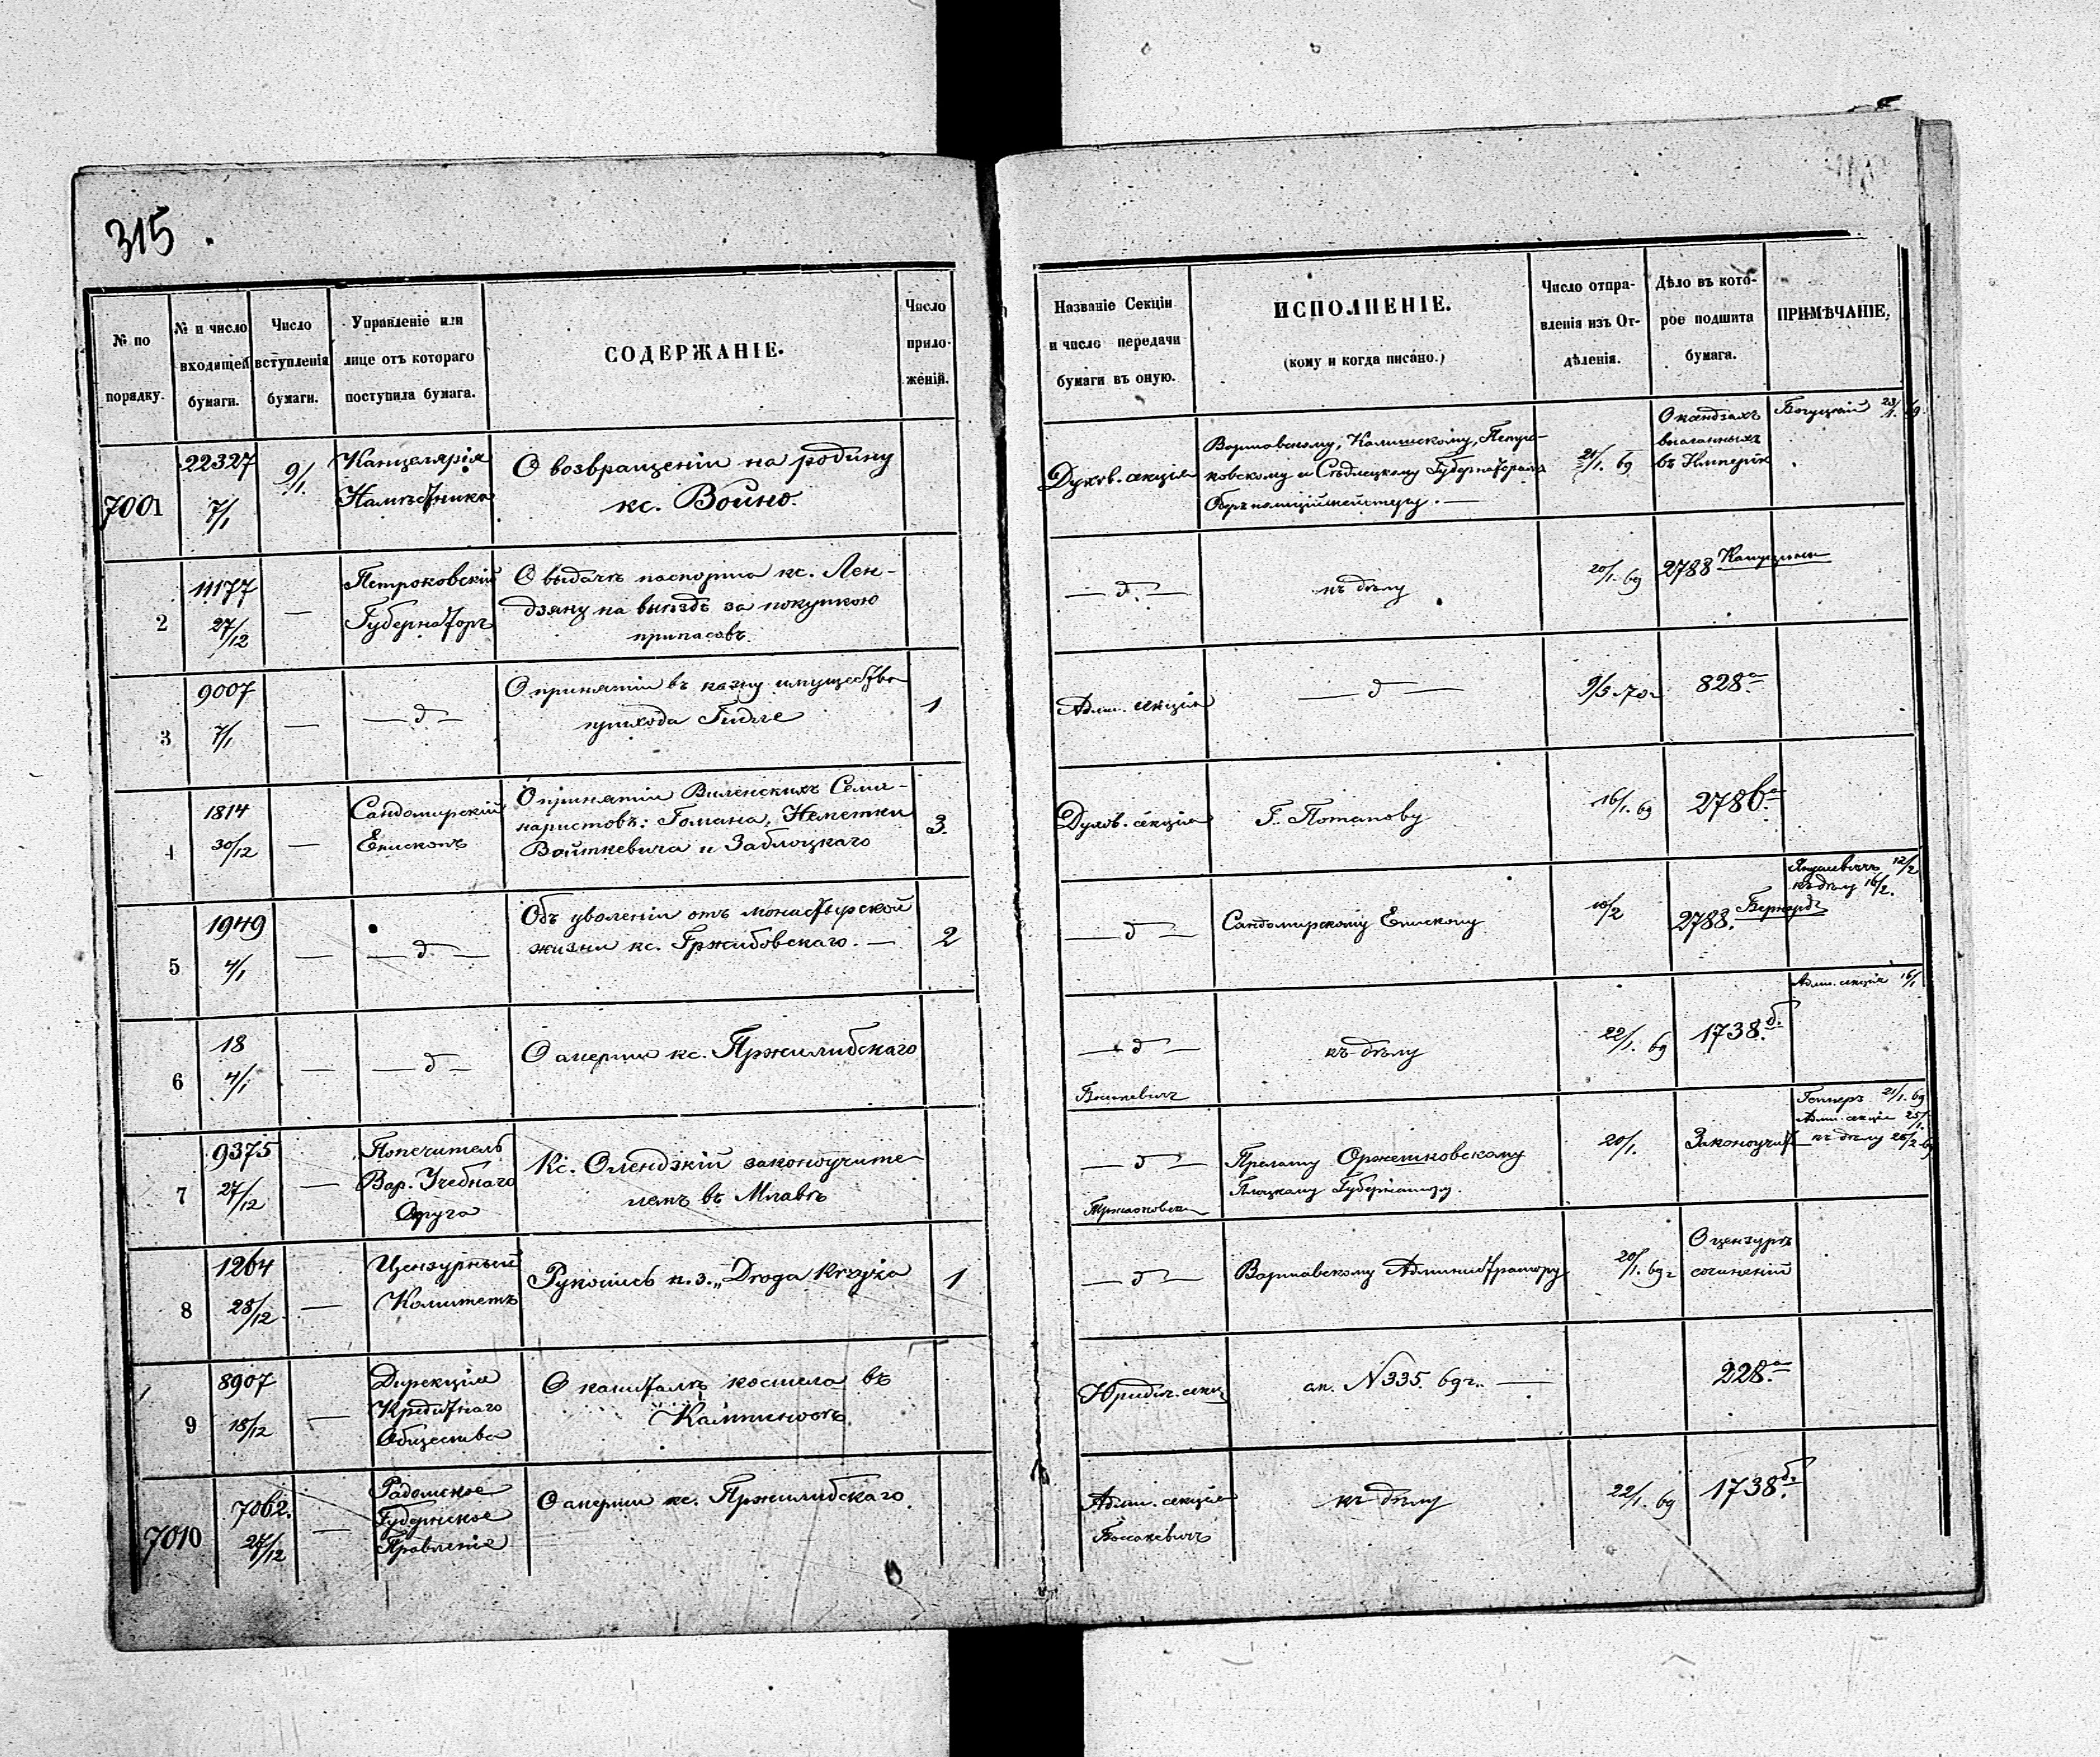 315
№ по порядку.
№ и число входящей бумаги.
Число вступленія бумаги.
Управленіе или лице отъ котораго поступила бумага.
СОДЕРЖАНІЕ.
Число приложеній.
Названіе Секціи и число передачи бумаги въ оную.
ИСПОЛНЕНІЕ.
(кому и когда писано.)
Число отправленія изъ Отдѣленія.
Дѣло въ которое подшита бумага.
ПРИМѢЧАНІЕ.
7001
22327
7/1
9/1.
Канцелярія
Намѣстника
О возвращеніи на родину
кс. Войно.
Духов. секція
Варшавскому, Калишскому, Петро-
ковскому и Сѣдлецкому Губернаторамъ
Оберъполиціймейстеру. —
21/1. 69
О ксендзахъ
высланныхъ
въ Имперію
23/1. 69
2
11177
27/12
—
Петроковскій
Губернаторъ
О выдачѣ паспорта кс. Лен-
дзяну на выѣздъ за покупкою
припасовъ.
— д. —
къ дѣлу
20/1. 69
2788
3
9007
7/1
—
— д —
О принятіи въ казну имущества
прихода Гидле
1
Адм. секція
— д —
9/5 70 г
828 а
4
1814
30/12
—
Сандомирскій
Епископъ
О принятіи Виленскихъ Семи-
наристовъ: Гомана, Неметки
Войткевича и Заблоцкаго
3.
Духов. секція
Г. Потапову
16/1. 69
2786 а
5
1949
4/1
—
— д —
Объ уволеніи отъ монастырской
жизни кс. Гржибовскаго. —
2
— д —
Сандомирскому Епископу
10/2
2788. Бернард
12/2
къ дѣлу 16/2.
6
18
4/1
—
— д —
О аперціи кс. Пржилибскаго
— д —
къ дѣлу
22/1. 69
1738 б.
Адм. секція 16/1
7
9375
27/12
—
Попечитель
Вар. Учебнаго
Округа
Кс. Олендзкій законоучите-
лемъ въ Млавѣ
— д —
Прелату Оржешковскому
Плоцкому Губернатору.
20/1.
Законоучит
21/1. 69
Адм. секція 25/1.
къ дѣлу
8
1264
28/12
—
Цензурный
Комитетъ
Рукопись п. з. „Droga Krzyża
1
— д —
Варшавскому Администратору
20/1. 69 г
О цензурѣ
сочиненій
9
8907
18/12
—
Дирекція
Кредитнаго
Общества
О капиталѣ костела въ
Юридич. секц
ал. N 335. 69 г. —
228 а
7010
7062.
27/12
—
Радомское
Губернское
Правленіе
О аперціи кс. Пржилибскаго.
Адм. секція
къ дѣлу
22/1. 69
1738 б.